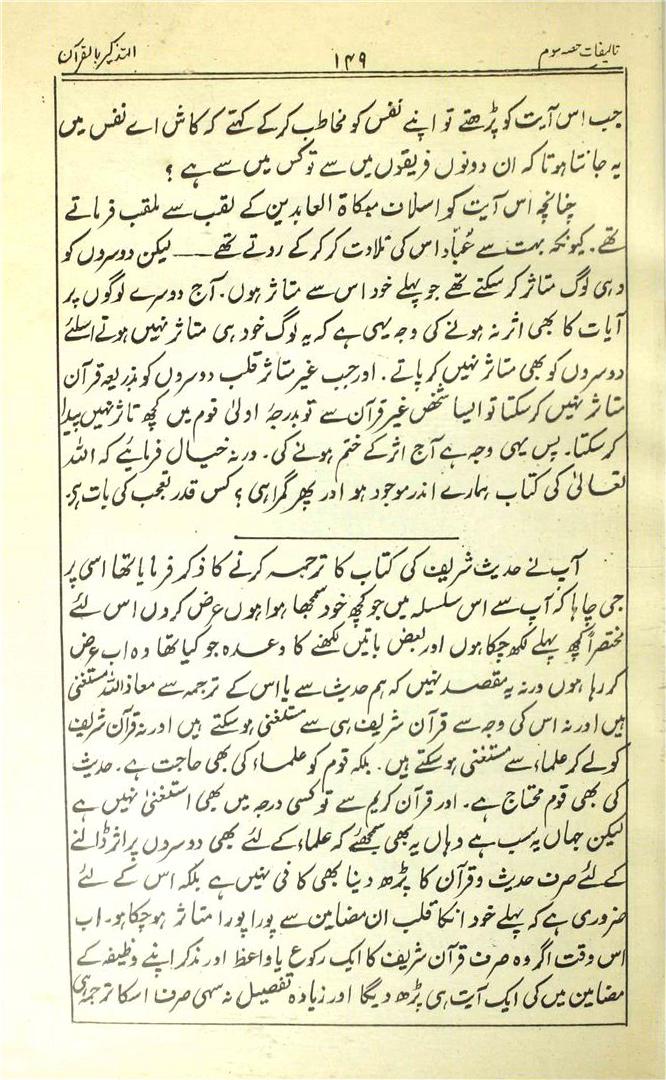 تالیفات حصہ سوم ۱۴۹ التذکیر بالقرآن
جب اس آیت کو پڑھتے تو اپنے نفس کو مخاطب کرکے کہتے کہ کاش اے نفس میں
یہ جانتا ہوتا کہ ان دونوں فریقوں میں سے تو کس میں سے ہے ؟
چنانچہ اس آیت کو اسلاف مبکاۃ العابدین کے لقب سے ملقب فرماتے
تھے۔ کیونکہ بہت سے عُبّاد اس کی تلاوت کرکر کے روتے تھے ــــ لیکن دوسروں کو
وہی لوگ متاثر کرسکتے تھے جو پہلے خود اس سے متاثر ہوں۔ آج دوسرے لوگوں پر
آیات کا بھی اثر نہ ہونے کی وجہ یہی ہے کہ یہ لوگ خود ہی متاثر نہیں ہوتے اسلئے
دوسروں کو بھی متاثر نہیں کر پاتے۔ اور جب غیر متاثر قلب دوسروں کو بذریعہ قرآن
متاثر نہیں کرسکتا تو ایسا شخص غیر قرآن سے تو بدرجۂ اولیٰ قوم میں کچھ تاثر نہیں پیدا
کرسکتا۔ پس یہی وجہ ہے آج اثر کے ختم ہونے کی۔ ورنہ خیال فرمایئے کہ اللہ
تعالیٰ کی کتاب ہمارے اندر موجود ہو اور پھر گمراہی ؟ کس قدر تعجب کی بات ہے۔
آپ نے حدیث شریف کی کتاب کا ترجمہ کرنے کا ذکر فرمایا تھا اسی پر
جی چاہا کہ آپ سے اس سلسلہ میں جو کچھ خود سمجھا ہوا ہوں عرض کردوں اس لئے
مختصراً کچھ پہلے لکھ چکا ہوں اور بعض باتیں لکھنے کا وعدہ جو کیا تھا وہ اب عرض
کر رہا ہوں ورنہ یہ مقصد نہیں کہ ہم حدیث سے یا اس کے ترجمہ سے معاذ اللہ مستغنی
ہیں اور نہ اس کی وجہ سے قرآن شریف ہی سے مستغنی ہوسکتے ہیں اور نہ قرآن شریف
کو لے کر علماء سے مستغنی ہوسکتے ہیں۔ بلکہ قوم کو علماء کی بھی حاجت ہے۔ حدیث
کی بھی قوم محتاج ہے۔ اور قرآن کریم سے تو کسی درجہ میں بھی استغنیٰ نہیں ہے
لیکن جہاں یہ سب ہے وہاں یہ بھی سمجھئے کہ علماء کے لئے بھی دوسروں پر اثر ڈالنے
کے لئے صرف حدیث و قرآن کا پڑھ دینا بھی کافی نہیں ہے بلکہ اس کے لئے
ضروری ہے کہ پہلے خود انکا قلب ان مضامین سے پورا پورا متاثر ہوچکا ہو۔ اب
اس وقت اگر وہ صرف قرآن شریف کا ایک رکوع یا واعظ اور مذکر اپنے وظیفہ کے
مضامین میں کی ایک آیت ہی پڑھ دیگا اور زیادہ تفصیل نہ سہی صرف اسکا ترجمہ ہی